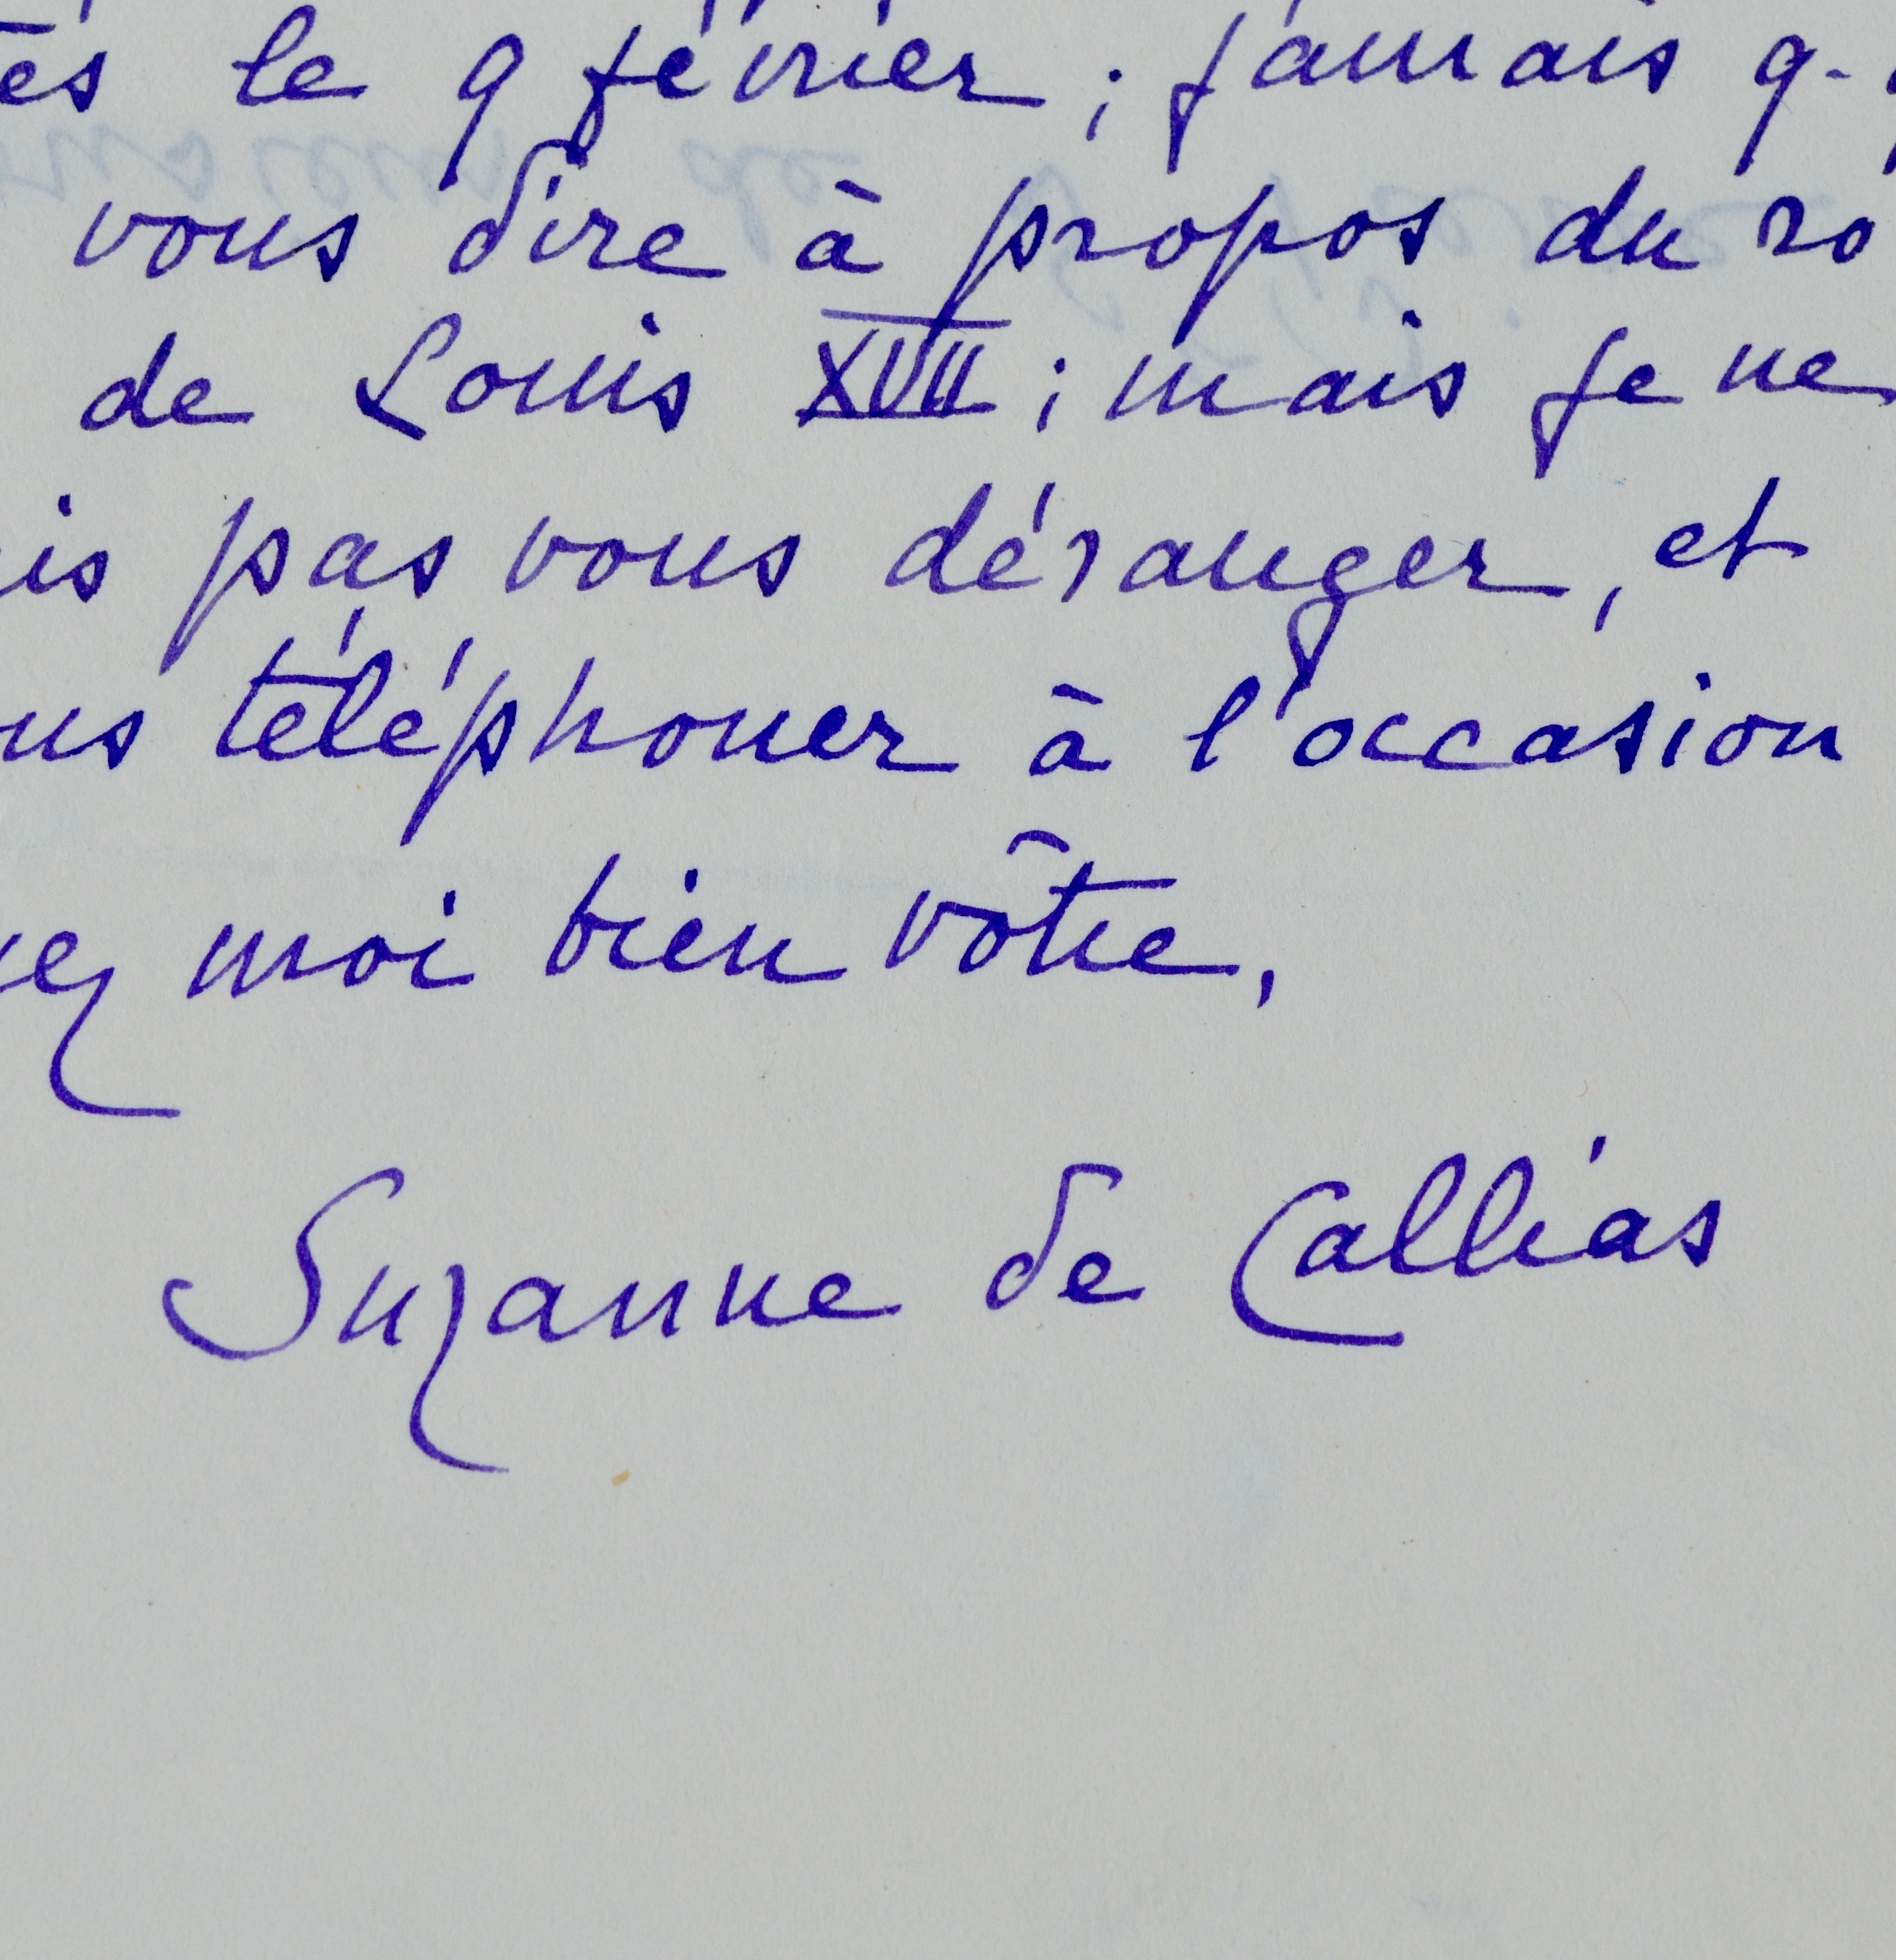 és le 9 février ; jamais q-
vous dire à propos du ro
de Louis XVII ; mais je ne
is pas vous déranger, et
us téléphoner à l'occasion
ez moi bien vôtre,
Suzanne de Callias